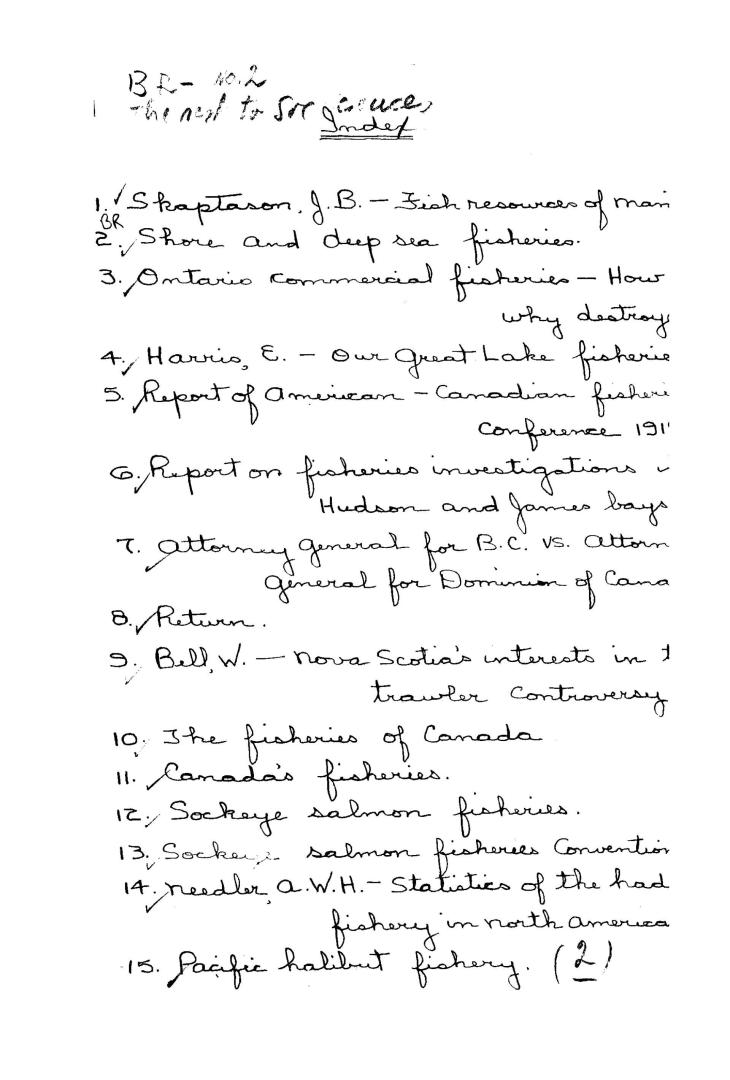 BR - No.2
The next to
Index
1. Skaptason, J.B. - Fish resources of man
BR
2. Shore and deep sea fisheries.
3. Ontario commercial fisheries - How
why destroy
4. Harris, E. - Our Great Lake fisherie
5. Report of American - Canadian fisheri
Conference 191
6. Report on fisheries investigations
Hudson and James bays
7. Attorney General for B.C. vs. Attorn
General for Dominion of Cana
8. Return.
9. Bell, W. - Nova Scotia's interests in t
trawler controversy
10. The fisheries of Canada
11. Canada's fisheries.
12. Sockeye salmon fisheries.
13. Sockeye salmon fisheries Convention
14. Needler, A.W.H. - Statistics of the had
fishery in North America
15. Pacific halibut fishery. (2)